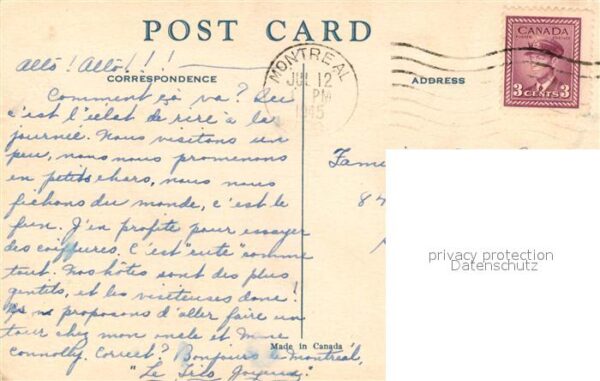 POST CARD
Allô! Allô!!!!
CORRESPONDENCE
ADDRESS
MONTREAL
JUL 12
PM
1945
CANADA
POSTES POSTAGE
3 CENTS 3
Comment ça va? Ici
c'est l'éclat de rire à la
journée. Nous visitons un
peu, nous nous promenons
en petits chars, nous nous
fichons du monde, c'est le
fun. J'en profite pour essayer
des coiffures. C'est "cute" comme
tout. Nos hôtes sont des plus
gentils, et les visiteuses donc!
se proposons d'aller faire un
tour chez mon oncle et Mme
Connolly. Correct? Bonjours de Montréal,
"Le Trio Joyeux"
Made in Canada
Fami
84
privacy protection
Datenschutz